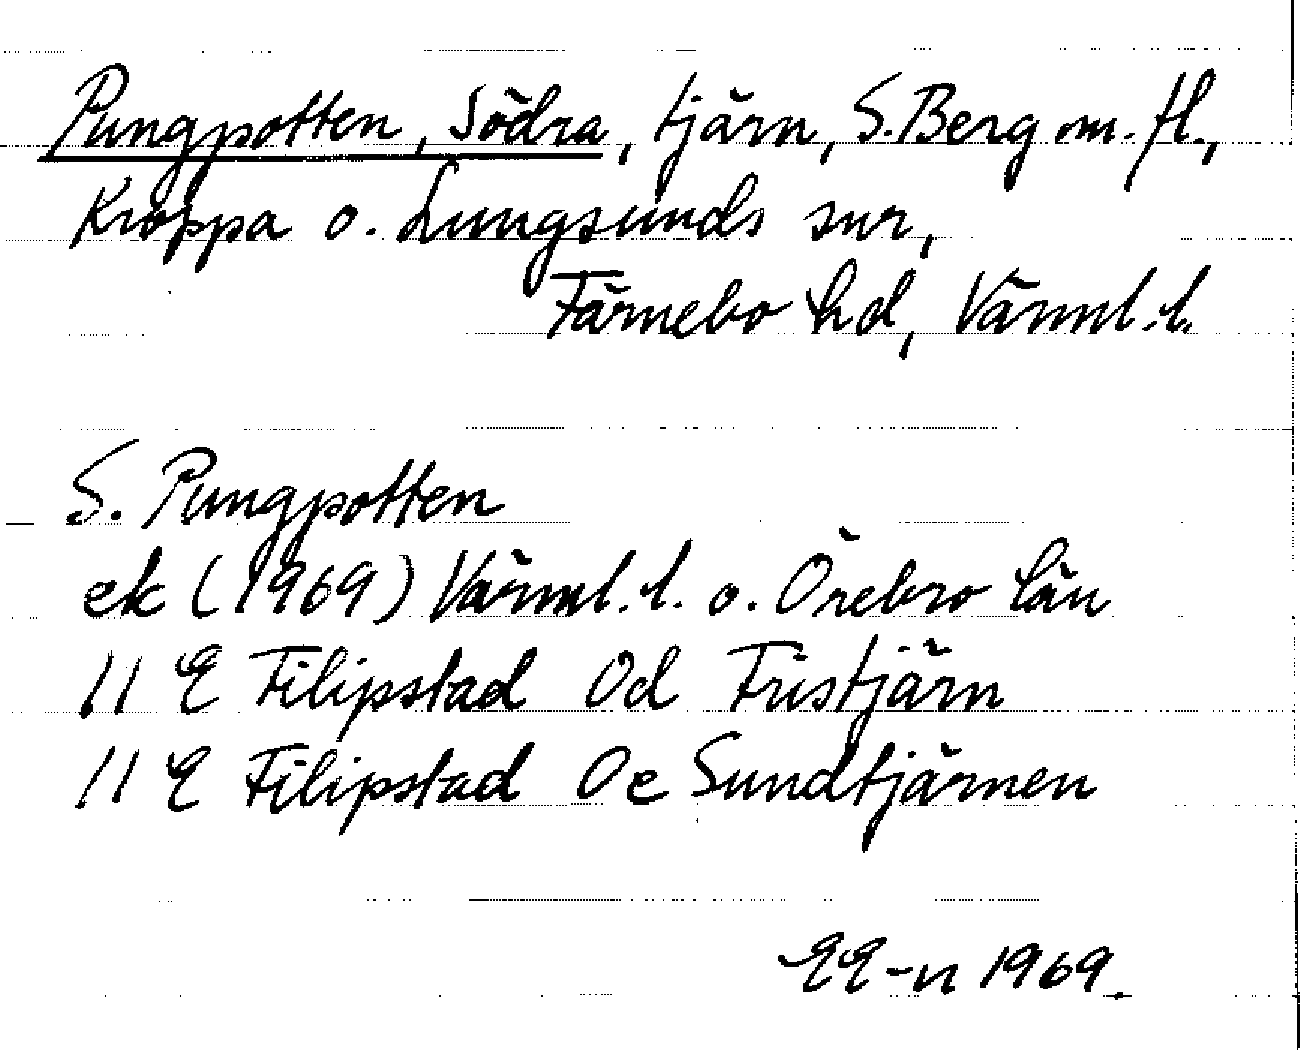 Pungpotten, Södra, tjärn, S. Berg m. fl.,
Kroppa o. Lungsunds snr,
Färnebo hd, Värml. l.
S. Pungpotten
ek (1969) Värml. l. o. Örebro län
11 E Filipstad 0d Fristjärn
11 E Filipstad 0e Sundtjärnen
EE-n 1969.